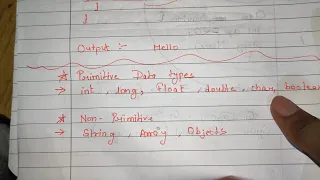 }
}
Output :- Hello
* Primitive Data types
→ int, long, float, double, char, boolean
* Non-Primitive
→ String, Array, Objects